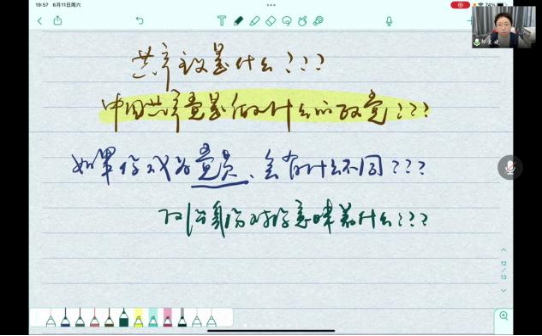 19:57 6月11日周六
共产主义是什么???
中国共产党是做什么的政党???
如果你成为党员、会有什么不同???
身份对你意味着什么???